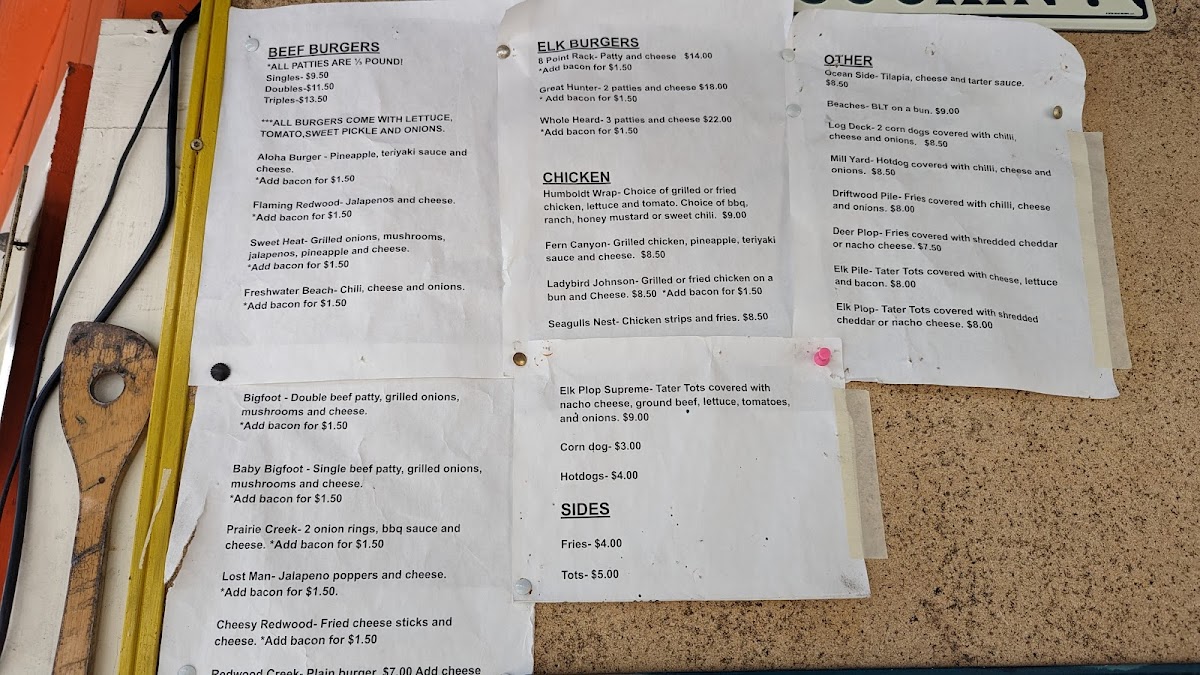 BEEF BURGERS
*ALL PATTIES ARE ⅓ POUND!
Singles- $9.50
Doubles-$11.50
Triples-$13.50
***ALL BURGERS COME WITH LETTUCE,
TOMATO,SWEET PICKLE AND ONIONS.
Aloha Burger - Pineapple, teriyaki sauce and
cheese.
*Add bacon for $1.50
Flaming Redwood- Jalapenos and cheese.
*Add bacon for $1.50
Sweet Heat- Grilled onions, mushrooms,
jalapenos, pineapple and cheese.
*Add bacon for $1.50
Freshwater Beach- Chili, cheese and onions.
*Add bacon for $1.50
Bigfoot - Double beef patty, grilled onions,
mushrooms and cheese.
*Add bacon for $1.50
Baby Bigfoot - Single beef patty, grilled onions,
mushrooms and cheese.
*Add bacon for $1.50
Prairie Creek- 2 onion rings, bbq sauce and
cheese. *Add bacon for $1.50
Lost Man- Jalapeno poppers and cheese.
*Add bacon for $1.50.
Cheesy Redwood- Fried cheese sticks and
cheese. *Add bacon for $1.50
Redwood Creek- Plain burger. $7.00 Add cheese
ELK BURGERS
8 Point Rack- Patty and cheese $14.00
*Add bacon for $1.50
Great Hunter- 2 patties and cheese $18.00
* Add bacon for $1.50
Whole Heard- 3 patties and cheese $22.00
*Add bacon for $1.50
CHICKEN
Humboldt Wrap- Choice of grilled or fried
chicken, lettuce and tomato. Choice of bbq,
ranch, honey mustard or sweet chili. $9.00
Fern Canyon- Grilled chicken, pineapple, teriyaki
sauce and cheese. $8.50
Ladybird Johnson- Grilled or fried chicken on a
bun and Cheese. $8.50 *Add bacon for $1.50
Seagulls Nest- Chicken strips and fries. $8.50
Elk Plop Supreme- Tater Tots covered with
nacho cheese, ground beef, lettuce, tomatoes,
and onions. $9.00
Corn dog- $3.00
Hotdogs- $4.00
SIDES
Fries- $4.00
Tots- $5.00
OTHER
Ocean Side- Tilapia, cheese and tarter sauce.
$8.50
Beaches- BLT on a bun. $9.00
Log Deck- 2 corn dogs covered with chilli,
cheese and onions. $8.50
Mill Yard- Hotdog covered with chilli, cheese and
onions. $8.50
Driftwood Pile- Fries covered with chilli, cheese
and onions. $8.00
Deer Plop- Fries covered with shredded cheddar
or nacho cheese. $7.50
Elk Pile- Tater Tots covered with cheese, lettuce
and bacon. $8.00
Elk Plop- Tater Tots covered with shredded
cheddar or nacho cheese. $8.00